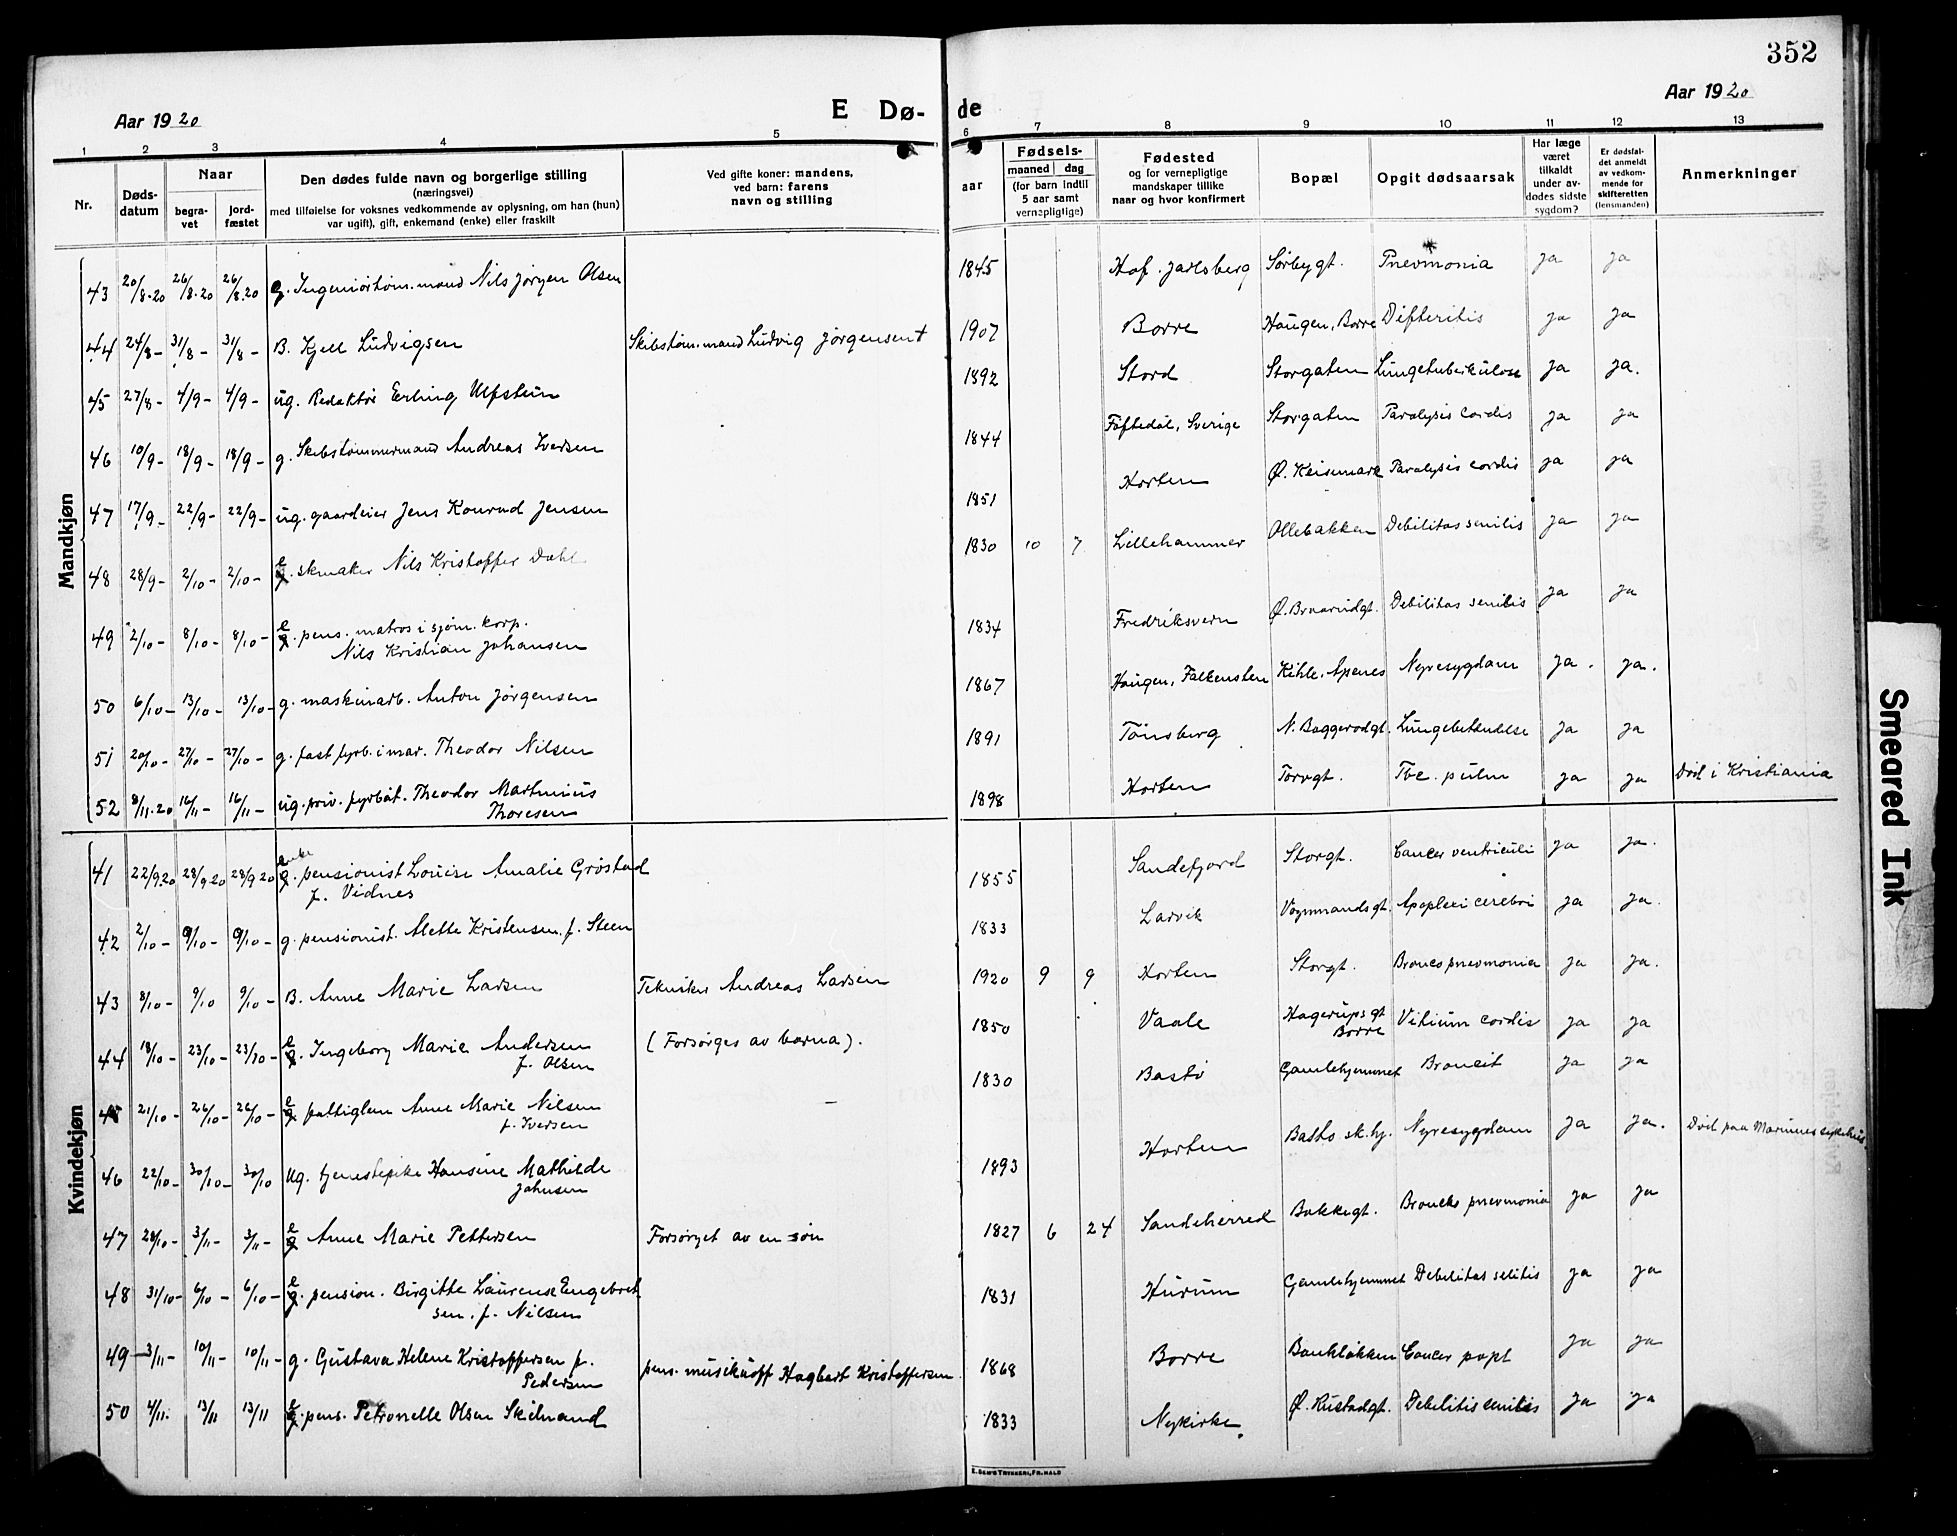 352
Aar 1920
E Dø-
de
Aar 1920
1 2 3 4 5 6 7 8 9 10 11 12 13
Nr.
Døds-
datum
Naar
begra-
vet
jord-
fæstet
Den dødes fulde navn og borgerlige stilling
(næringsvei)
med tilføielse for voksnes vedkommende av oplysning, om han (hun)
var ugift), gift, enkemand (enke) eller fraskilt
Ved gifte koner: mandens,
ved barn: farens
navn og stilling
aar
Fødsels-
maaned dag
(for barn indtil
5 aar samt
vernepligtige)
Fødested
og for vernepligtige
mandskaper tillike
naar og hvor konfirmert
Bopæl
Opgit dødsaarsak
Har læge
været
tilkaldt
under av-
dødes sidste
sygdom?
Er dødsfal-
det anmeldt
av vedkom-
mende for
skifteretten
(lensmanden)
Anmerkninger
Mandkjøn
43 20/8.20 26/8.20 26/8.20 g. Ingeniørtøm.mand Nils Jørgen Olsen 1845 Hof. Jarlsberg Sørbygt. Pnevmonia ja ja
44 24/8- 31/8- 31/8- B. Kjell Ludvigsen Skibstøm.mand Ludvig Jørgensen † 1907 Borre Haugen, Borre Difteritis ja ja
45 27/8- 4/9- 4/9- ug. Redaktør Erling Ulfstein 1892 Stord Storgaten Lungetuberkulose ja ja.
46 10/9- 18/9- 18/9- g. Skibstømmermand Andreas Iversen 1844 Foftedal, Sverige Storgaten Paralysis cordis ja ja
47 17/9- 22/9- 22/9- ug. gaardeier Jens Konrad Jensen 1851 Horten Ø. Keisemark Paralysis cordis ja ja
48 28/9- 2/10- 2/10- e. skmaker Nils Kristoffer Dahl 1830 10 7 Lillehammer Ollebakken Debilitas senilis ja ja
49 2/10- 8/10- 8/10- e. pens. matros i sjøm. korp.
Nils Kristian Johansen 1834 Fredriksvern Ø. Braarudgt. Debilitas senilis ja ja
50 6/10- 13/10- 13/10- g. maskinarb. Anton Jørgensen 1867 Haugen, Falkensten Kihle, Apenes Nyresygdam ja. ja.
51 20/10- 27/10- 27/10- g. fast fyrb. i mar. Theodor Nilsen 1891 Tønsberg N. Baggerødgt. Lungebetændelse ja ja
52 8/11.20 16/11- 16/11- ug. priv. fyrbøt. Theodor Martinius
Thoresen 1898 Horten Torvgt. Tbc. pulm ja ja Død i Kristiania
Kvindekjøn
41 22/9.20 28/9.20 28/9 20 enke pensionist Louise Amalie Grøstad
f. Vidnes 1855 Sandefjord Storgt. Cancer ventriculi ja ja.
42 2/10- 9/10- 9/10- g. pensionist. Mette Kristensen f. Steen 1833 Larvik Vognmandsgt. Apoplexi cerebri ja ja.
43 8/10- 9/10 9/10- B. Anne Marie Larsen Tekniker Andreas Larsen 1920 9 9 Horten Storgt. Broncopnevmonia ja ja.
44 18/10- 23/10- 23/10- e. Ingeborg Marie Andersen
f. Olsen (Forsørges av barna). 1850 Vaale Hagerups gt
Borre Vitium cordis ja ja
45 21/10- 26/10- 26/10- e. fattiglem Anne Marie Nilsen
f. Iversen 1830 Bastø Gamlehjemmet Broncit ja ja
46 22/10- 30/10- 30/10 ug. tjenestepike Hansine Mathilde
Johnsen 1893 Horten Bastø sk.hj. Nyresygdam ja ja. Død paa Marinens sykehus
47 28/10- 3/11- 3/11- e Anne Marie Pettersen Forsørget av en søn 1827 6 24 Sandeherred Bakkegt. Broncho pnevmonia ja ja
48 31/10- 6/10- 6/10- e. pension. Birgitte Laurense Engebret-
sen. f. Nilsen 1831 Hurum Gamlehjemmet Debilitas selitis ja ja
49 3/11- 10/11- 10/11- g. Gustava Helene Kristoffersen f.
Pedersen pens. musikuoff Hagbart Kristoffersen 1868 Borre Bankløkken Cancer ja ja
50 4/11. 13/11 13/11 e. pens. Petronelle Olsen Skilnand 1833 Nykirke. Ø. Rustadgt. Debilitis senilis ja ja
E. SEM'S TRYKKERI, FR.HALD
Smeared Ink